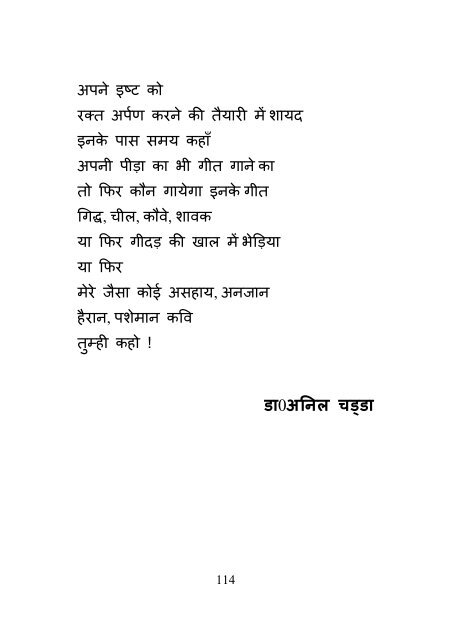 अपने इष्ट को
रक्त अर्पण करने की तैयारी में शायद
इनके पास समय कहाँ
अपनी पीड़ा का भी गीत गाने का
तो फिर कौन गायेगा इनके गीत
गिद्ध, चील, कौवे, शावक
या फिर गीदड़ की खाल में भेड़िया
या फिर
मेरे जैसा कोई असहाय, अनजान
हैरान, पशेमान कवि
तुम्ही कहो !
डा0अनिल चड्डा
114